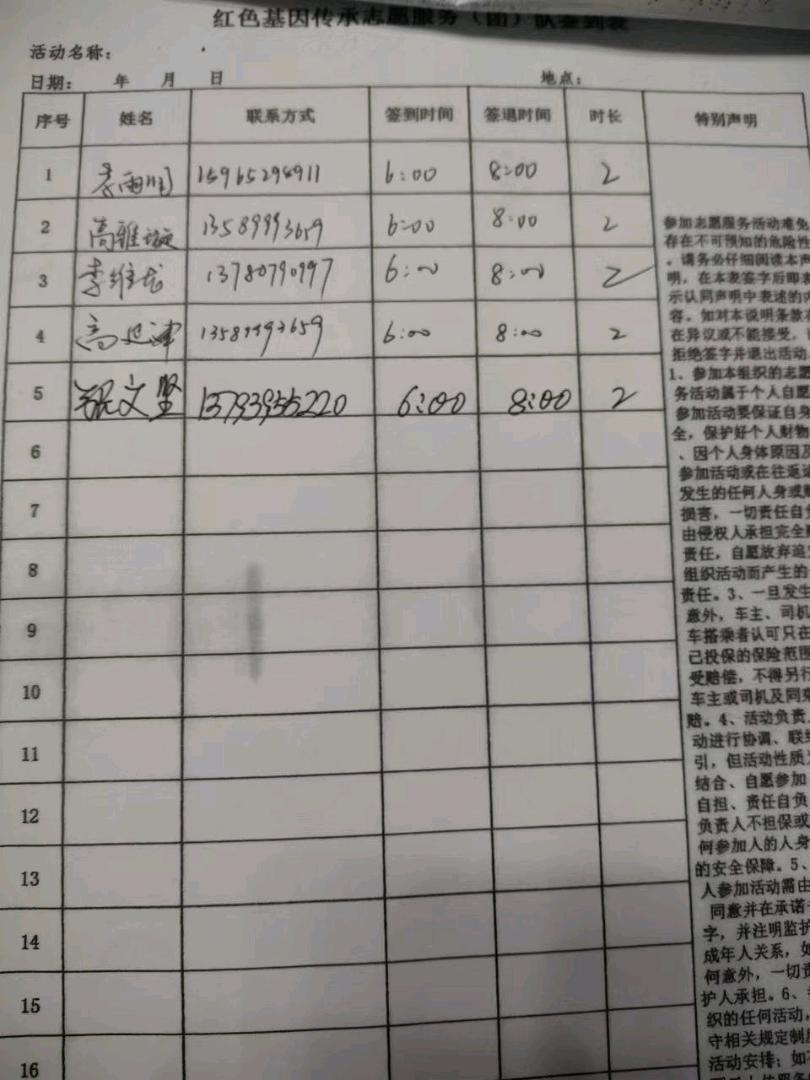 红色基因传承志愿服务（团）队签到表
活动名称：
日期： 年 月 日 地点：
序号 姓名 联系方式 签到时间 签退时间 时长 特别声明
1 李雨 6:00 8:00 2
2 高雅 13589993659 6:00 8:00 2
3 李维龙 13780790997 6:00 8:00 2
4 高延津 13589993659 6:00 8:00 2
5 张文坚 13793955220 6:00 8:00 2
6
7
8
9
10
11
12
13
14
15
16
参加志愿服务活动难免
存在不可预知的危险性
，请务必仔细阅读本声
明，在本表签字后即表
示认同声明中表述的内
容。如对本说明条款存
在异议或不能接受，请
拒绝签字并退出活动。
1、参加本组织的志愿
务活动属于个人自愿
参加活动要保证自身
全，保护好个人财物
、因个人身体原因及
参加活动或在往返途
发生的任何人身或财
损害，一切责任自负
由侵权人承担完全赔
责任，自愿放弃追究
组织活动而产生的
责任。3、一旦发生
意外，车主、司机
车搭乘者认可只在
己投保的保险范围
受赔偿，不得另行
车主或司机及同乘
赔。4、活动负责人
动进行协调、联络
引，但活动性质为
结合、自愿参加
自担、责任自负
负责人不担保或
何参加人的人身
的安全保障。5、
人参加活动需由
同意并在承诺书
字，并注明监护
成年人关系，如
何意外，一切责
护人承担。6、参
织的任何活动，
守相关规定制度
活动安排；如有